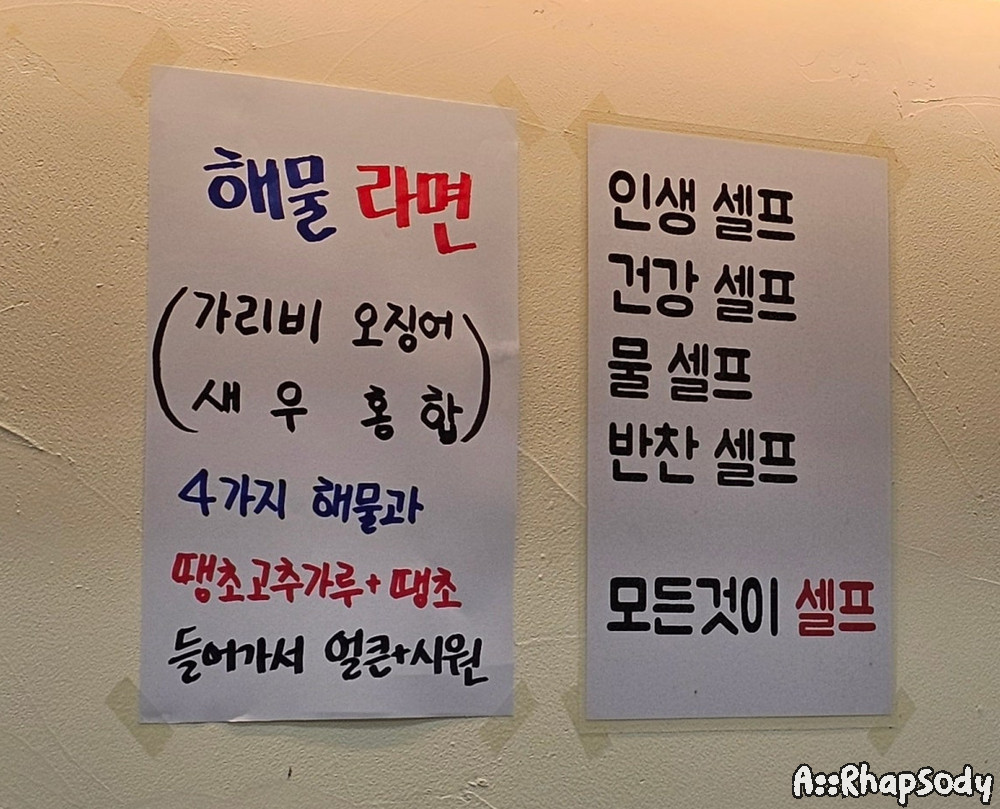 해물 라면
(가리비 오징어
새우 홍합)
4가지 해물과
땡초고추가루+땡초
들어가서 얼큰+시원
인생 셀프
건강 셀프
물 셀프
반찬 셀프
모든것이 셀프
A::Rhapsody